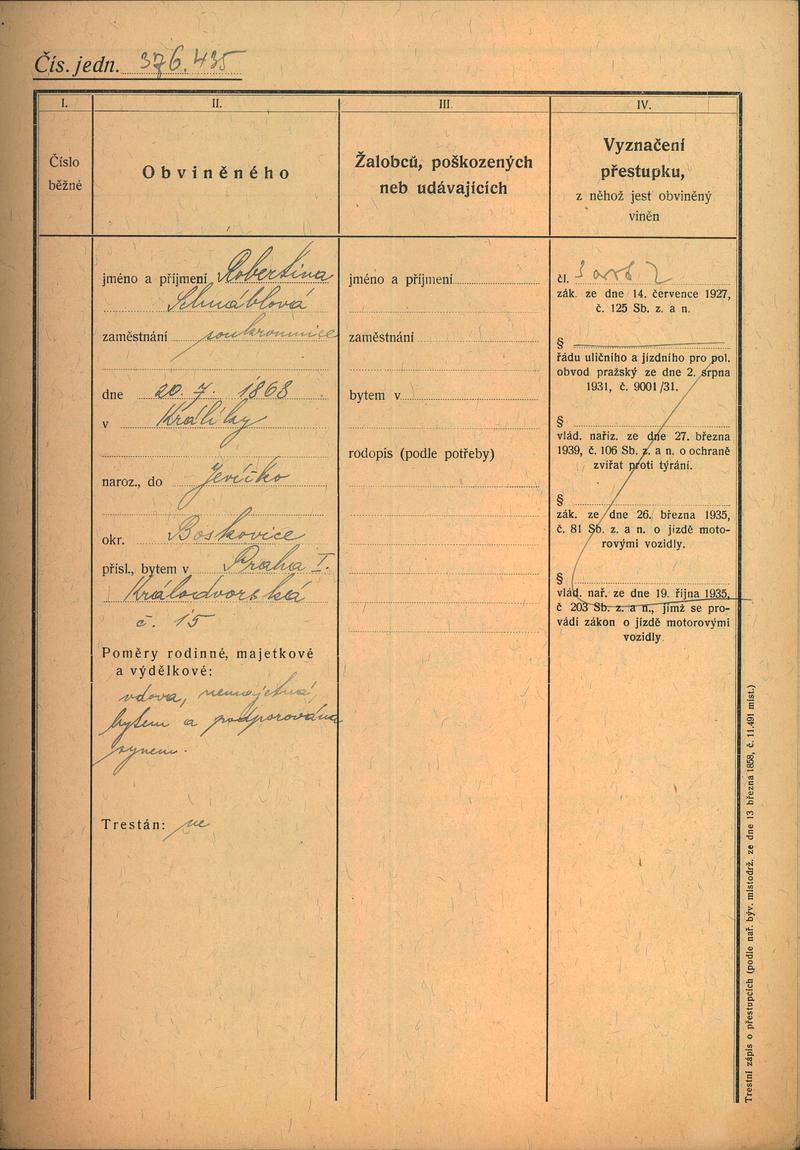 Čís. jedn. 376.435
I.
Číslo
běžné
II.
Obviněného
jméno a příjmení Robertina
Schnáblová
zaměstnání soukromnice
dne 20. 7. 1868
v Králíky
naroz., do Jevíčko
okr. Boskovice
přísl., bytem v Praha I.
Králodvorská
č. 15
Poměry rodinné, majetkové
a výdělkové:
vdova, nemajetná,
bytem a podporována
synem.
Trestán: ne
III.
Žalobců, poškozených
neb udávajících
jméno a příjmení
zaměstnání
bytem v
rodopis (podle potřeby)
IV.
Vyznačení
přestupku,
z něhož jest obviněný
viněn
čl. 3 2
zák. ze dne 14. července 1927,
č. 125 Sb. z. a n.
§
řádu uličního a jízdního pro pol.
obvod pražský ze dne 2. srpna
1931, č. 9001/31.
§
vlád. naříz. ze dne 27. března
1939, č. 106 Sb. z. a n. o ochraně
zvířat proti týrání.
§
zák. ze dne 26. března 1935,
č. 81 Sb. z. a n. o jízdě moto-
rovými vozidly.
§
vlád. nař. ze dne 19. října 1935,
č 203 Sb. z. a n., jímž se pro-
vádí zákon o jízdě motorovými
vozidly.
Trestní zápis o přestupcích (podle nař. býv. místodrž. ze dne 13 března 1858, č. 11.491 míst.)